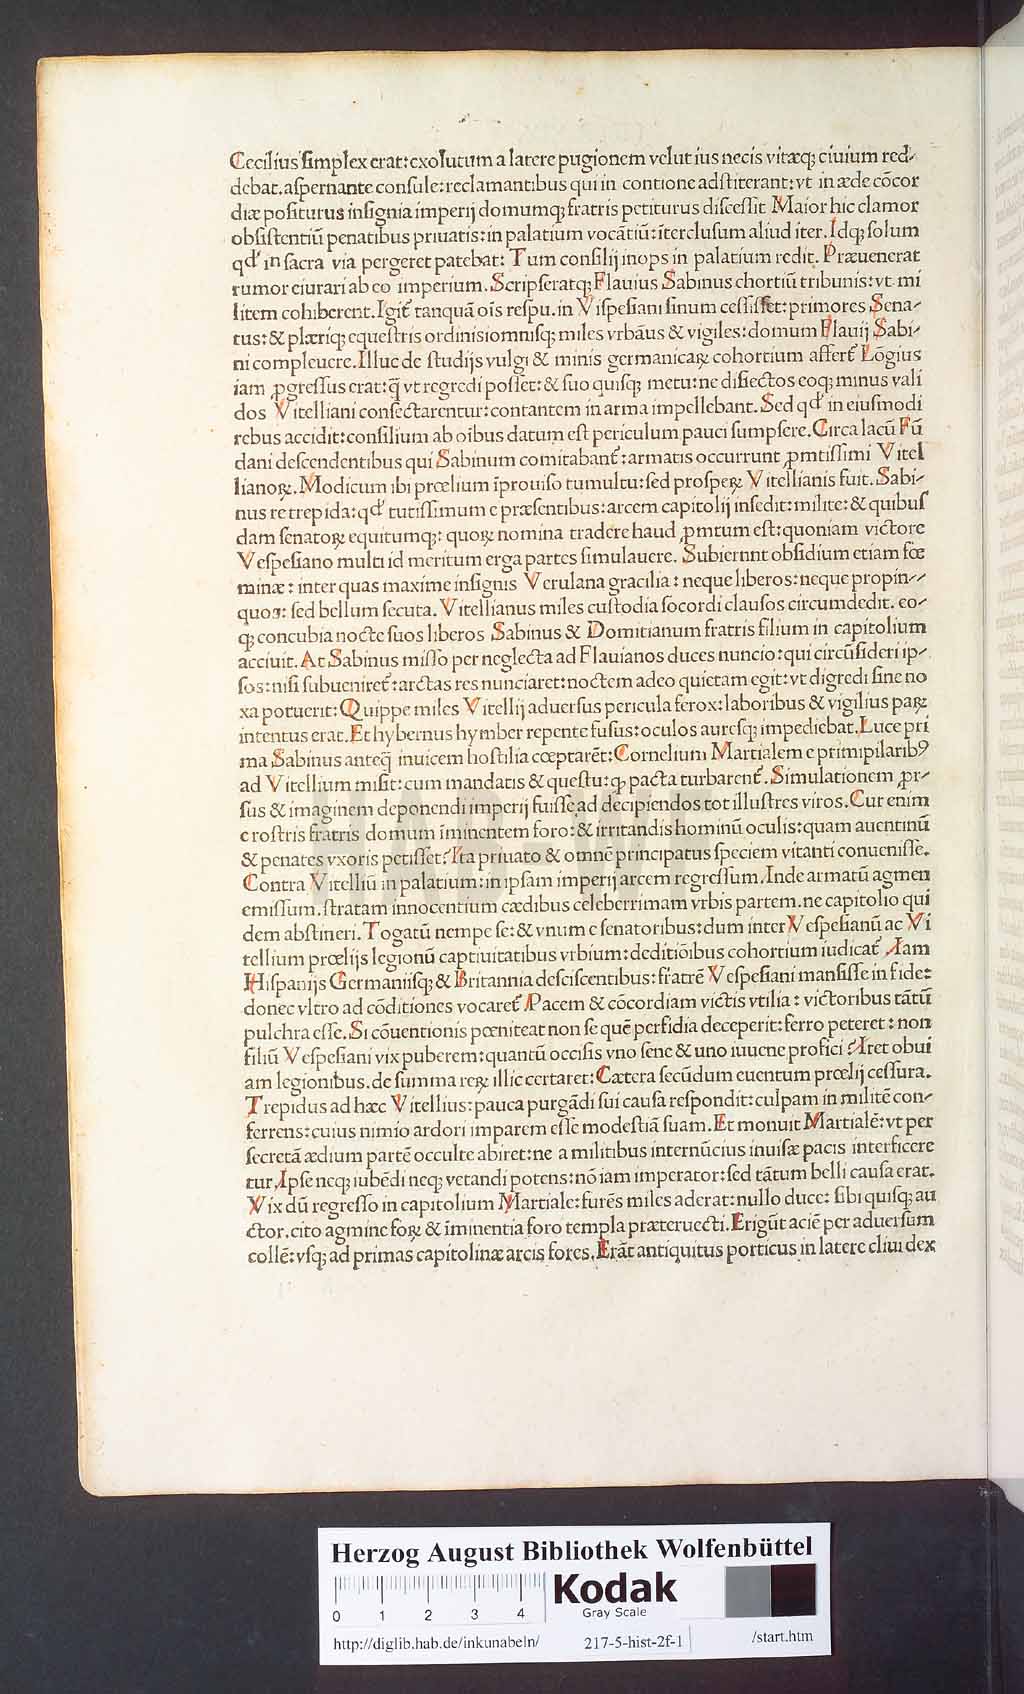 Cecilius simplex erat: exolutum a latere pugionem velut ius necis vitæq; ciuium red-
debat. aspernante consule: reclamantibus qui in contione adstiterant: vt in æde cōcor
diæ positurus insignia imperij domumq; fratris petiturus discessit Maior hic clamor
obsistentiū penatibus priuatis: in palatium vocātiū: īterclusum aliud iter. Idq; solum
qđ in sacra via pergeret patebat: Tum consilij inops in palatium redit. Præuenerat
rumor eiurari ab eo imperium. Scripseratq; Flauius Sabinus chortiū tribunis: vt mi
litem cohiberent. Igit̃ tanquā oīs respu. in Vespesiani sinum cessisset: primores Sena-
tus: & plæriq; equestris ordinisiomnisq; miles vrbāus & vigiles: domum Flauij Sabi-
ni compleuere. Illuc de studijs vulgi & minis germanicaꝝ cohortium affert̃ Lōgius
iam ꝓgressus erat: q̄ vt regredi posset: & suo quisq; metu: ne disiectos eoq; minus vali
dos Vitelliani consectarentur: contantem in arma impellebant. Sed qđ in eiusmodi
rebus accidit: consilium ab oībus datum est periculum pauci sumpsere. Circa lacū Fū
dani descendentibus qui Sabinum comitabant̃: armatis occurrunt ꝓmtissimi Vitel
lianoꝝ. Modicum ibi prœlium īprouiso tumultu: sed prospeꝝ Vitellianis fuit. Sabi-
nus re trepida: qđ tutissimum e præsentibus: arcem capitolij insedit: milite: & quibus
dam senatoꝝ equitumq;: quoꝝ nomina tradere haud ꝓmtum est: quoniam victore
Vespesiano multi id meritum erga partes simulauere. Subiernnt obsidium etiam fœ
minæ: inter quas maxime insignis Verulana gracilia: neque liberos: neque propin-
quos: sed bellum secuta. Vitellianus miles custodia socordi clausos circumdedit. eo-
q; concubia nocte suos liberos Sabinus & Domitianum fratris filium in capitolium
acciuit. At Sabinus misso per neglecta ad Flauianos duces nuncio: qui circūsideri ip-
sos: nisi subueniret̃: arctas res nunciaret: noctem adeo quietam egit: vt digredi sine no
xa potuerit: Quippe miles Vitellij aduersus pericula ferox: laboribus & vigilius paꝝ
intentus erat. Et hybernus hymber repente fusus: oculos auresq; impediebat. Luce pri
ma Sabinus anteq̄ inuicem hostilia cœptarēt: Cornelium Martialem e primipilaribꝰ
ad Vitellium misit: cum mandatis & questu: ꝙ pacta turbarent̃. Simulationem ꝓr-
sus & imaginem deponendi imperij fuisse ad decipiendos tot illustres viros. Cur enim
e rostris fratris domum īminentem foro: & irritandis hominū oculis: quam auentinū
& penates vxoris petisset? Ita priuato & omnē principatus speciem vitanti conuenisse.
Contra Vitelliū in palatium: in ipsam imperij arcem regressum. Inde armatū agmen
emissum. stratam innocentium cædibus celeberrimam vrbis partem. ne capitolio qui
dem abstineri. Togatū nempe se: & vnum e senatoribus: dum inter Vespesianū ac Vi
tellium prœlijs legionū captiuitatibus vrbium: deditiōibus cohortium iudicat̃ Iam
Hispanijs Germaniisq; & Britannia desciscentibus: fratrē Vespesiani mansisse in fide:
donec vltro ad cōditiones vocaret̃ Pacem & cōcordiam victis vtilia: victoribus tātū
pulchra esse. Si cōuentionis pœniteat non se quē perfidia deceperit: ferro peteret: non
filiū Vespesiani vix puberem: quantū occisis vno sene & uno iuuene profici? Iret obui
am legionibus. de summa reꝝ illic certaret: Cætera secūdum euentum prœlij cessura.
Trepidus ad hæc Vitellius: pauca purgādi sui causa respondit: culpam in militē con-
ferrens: cuius nimio ardori imparem esse modestiā suam. Et monuit Martialē: vt per
secretā ædium partē occulte abiret: ne a militibus internūcius inuisæ pacis interficere
tur. Ipse neq; iubēdi neq; vetandi potens: nō iam imperator: sed tātum belli causa erat.
Vix dū regresso in capitolium Martiale: furēs miles aderat: nullo duce: sibi quisq; au
ctor. cito agmine foꝝ & īminentia foro templa præteruecti. Erigūt aciē per aduersum
collē: vsq; ad primas capitolinæ arcis fores. Erāt antiquitus porticus in latere cliui dex
Herzog August Bibliothek Wolfenbüttel
0 1 2 3 4
Kodak
Gray Scale
http://diglib.hab.de/inkunabeln/ 217-5-hist-2f-1 /start.htm